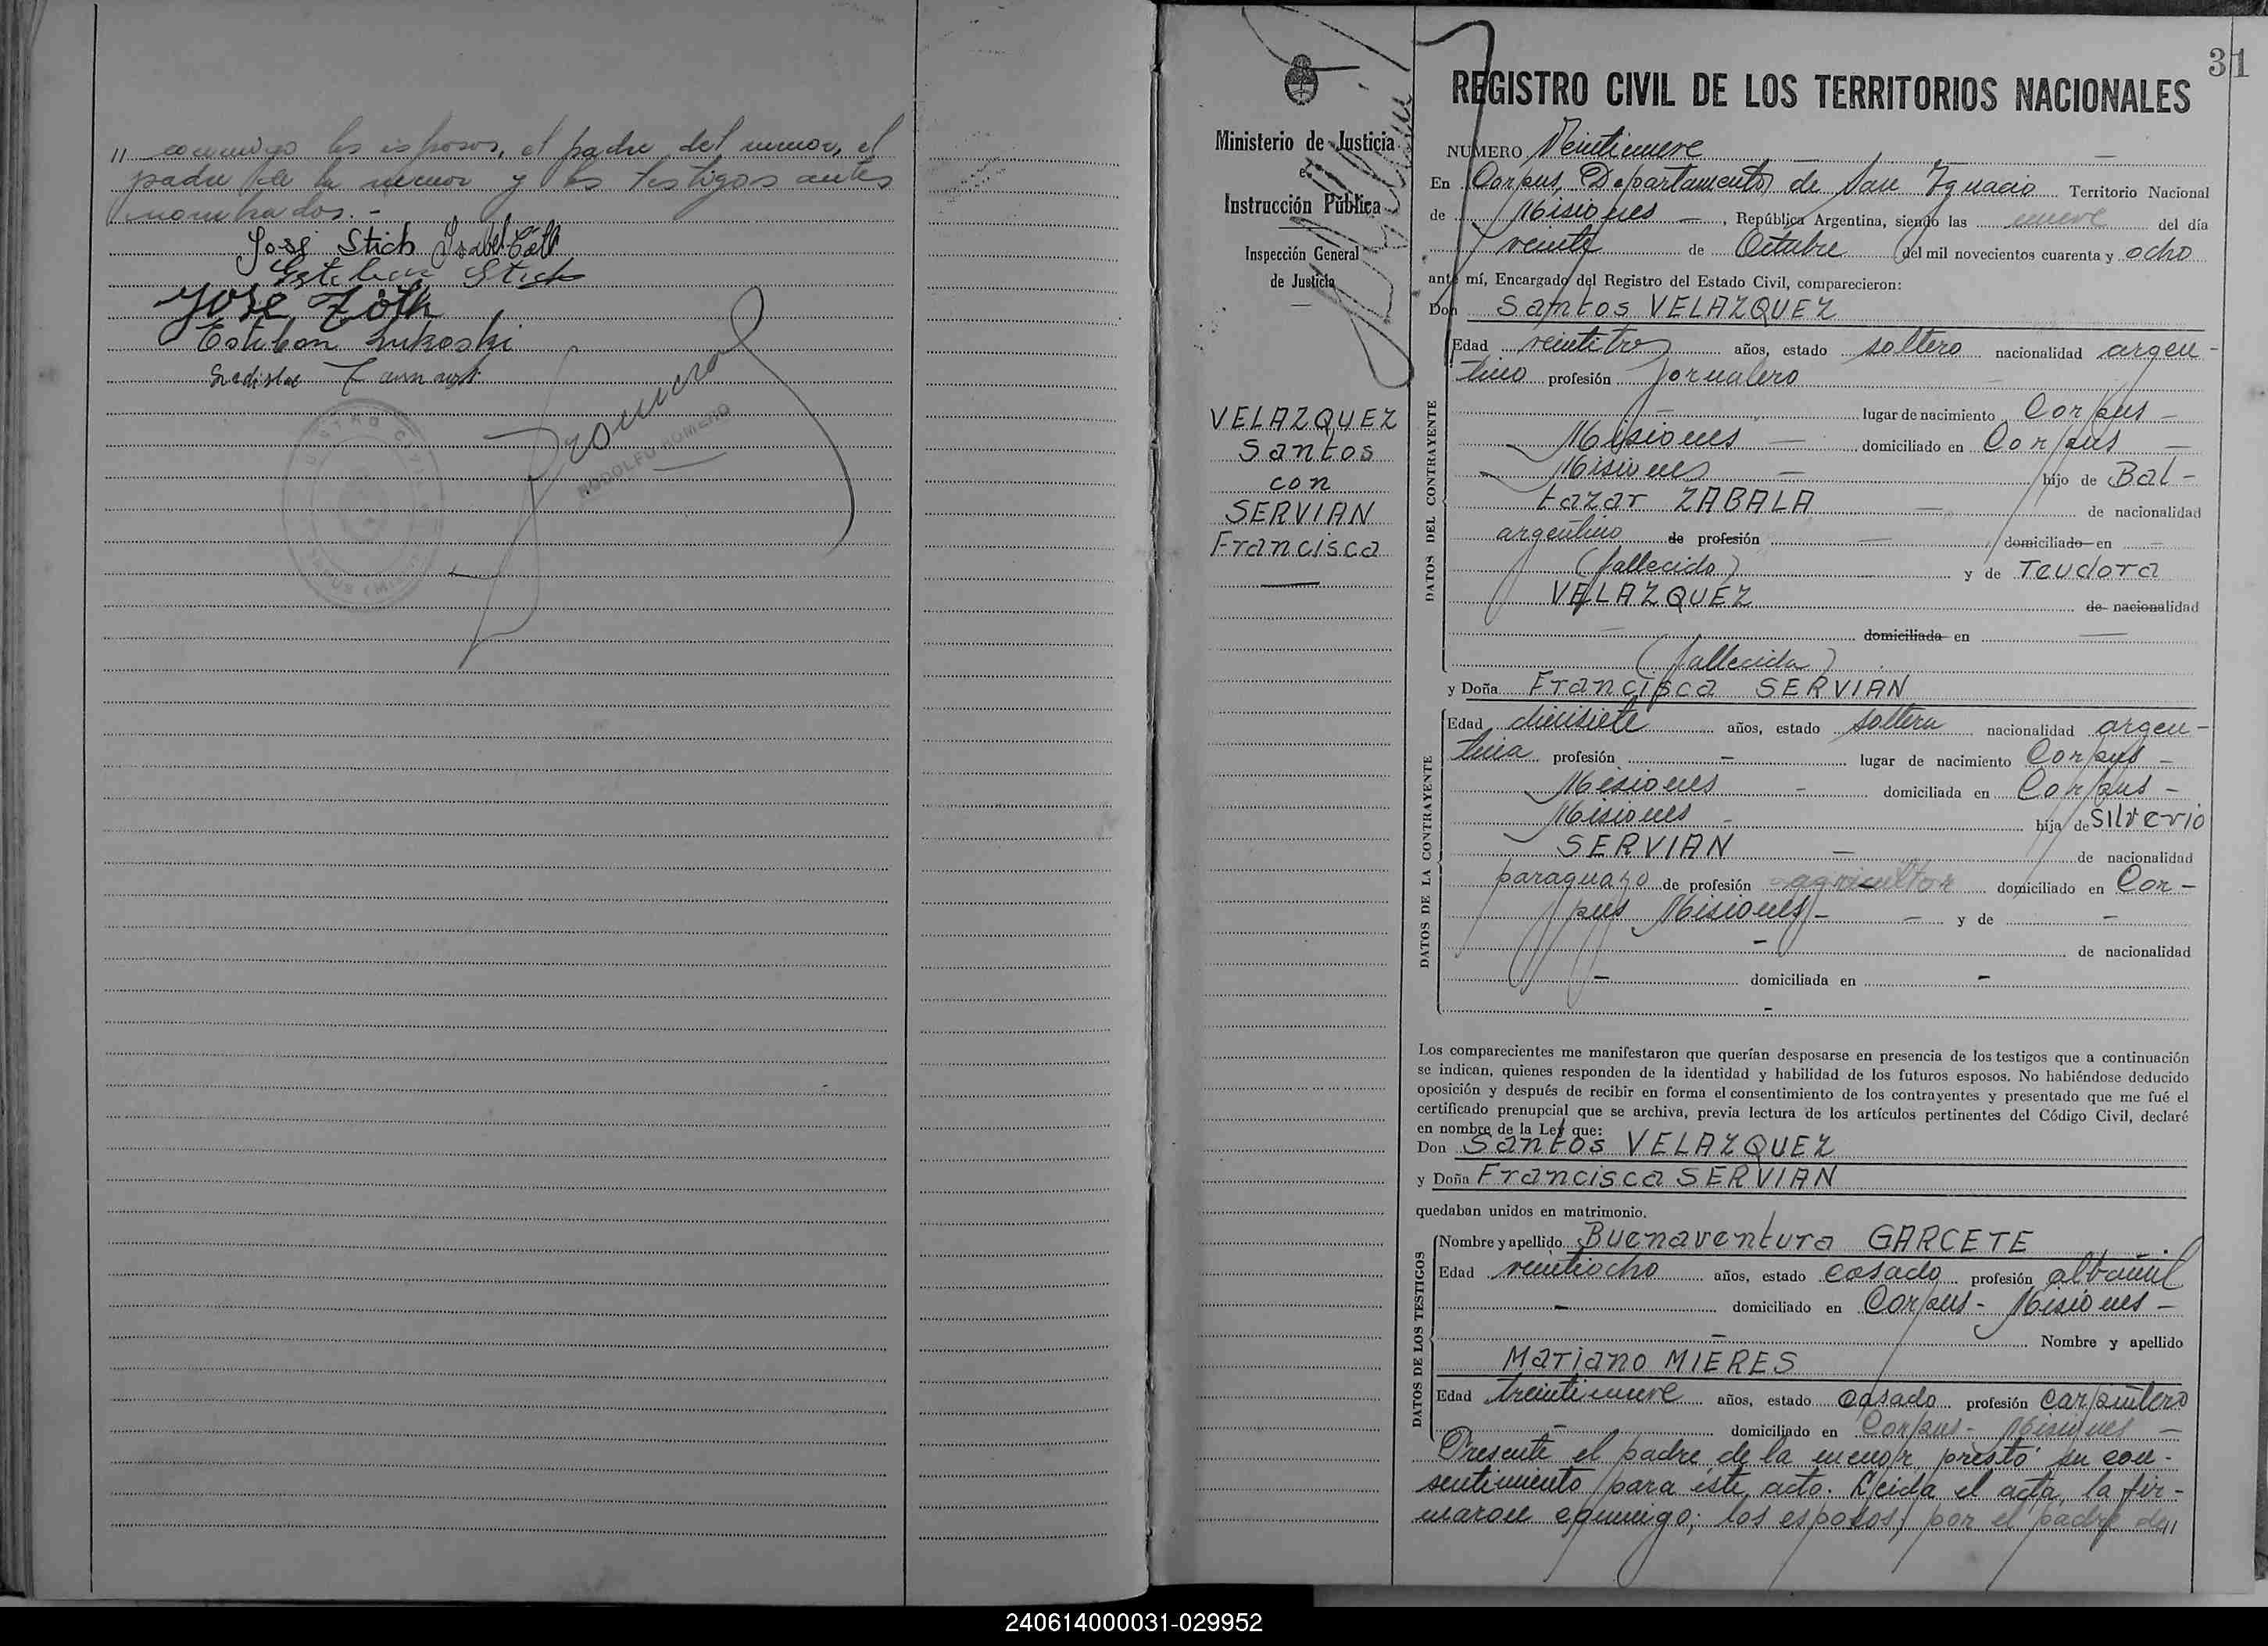 " conmigo los esposos, el padre del menor, el
padre de la menor y los testigos antes
nombrados. -
José Stich Isabel Toth
Esteban Stich
José Tóth
Esteban Lukoski
Ladislao
Romero
RODOLFO ROMERO
31
Ministerio de Justicia
e
Instrucción Pública
Inspección General
de Justicia
VELAZQUEZ
Santos
con
SERVIAN
Francisca
REGISTRO CIVIL DE LOS TERRITORIOS NACIONALES
NUMERO Veintinueve
En Corpus, Departamento de San Ignacio Territorio Nacional
de Misiones —, República Argentina, siendo las nueve del día
veinte de Octubre del mil novecientos cuarenta y ocho
ante mí, Encargado del Registro del Estado Civil, comparecieron:
Don Santos VELAZQUEZ
DATOS DEL CONTRAYENTE
Edad veintitres años, estado soltero nacionalidad argen-
tino profesión Jornalero
— lugar de nacimiento Corpus -
Misiones — domiciliado en Corpus —
Misiones — hijo de Bal-
tazar ZABALA — de nacionalidad
argentino de profesión — domiciliado en —
(fallecido) y de Teudora
VELAZQUEZ de nacionalidad
— domiciliada en —
(fallecida)
y Doña Francisca SERVIAN
DATOS DE LA CONTRAYENTE
Edad diecisiete años, estado soltera nacionalidad argen-
tina profesión — lugar de nacimiento Corpus -
Misiones - domiciliada en Corpus -
Misiones - hija de Silverio
SERVIAN — de nacionalidad
paraguayo de profesión agricultor domiciliado en Cor-
pus Misiones - — y de —
- de nacionalidad
- domiciliada en -
-
Los comparecientes me manifestaron que querían desposarse en presencia de los testigos que a continuación
se indican, quienes responden de la identidad y habilidad de los futuros esposos. No habiéndose deducido
oposición y después de recibir en forma el consentimiento de los contrayentes y presentado que me fué el
certificado prenupcial que se archiva, previa lectura de los artículos pertinentes del Código Civil, declaré
en nombre de la Ley que:
Don Santos VELAZQUEZ
y Doña Francisca SERVIAN
quedaban unidos en matrimonio.
DATOS DE LOS TESTIGOS
Nombre y apellido Buenaventura GARCETE
Edad veintiocho años, estado casado profesión albañil
- domiciliado en Corpus - Misiones -
— Nombre y apellido
Mariano MIERES
Edad treintinueve años, estado casado profesión carpintero
- domiciliado en Corpus - Misiones —
Presente el padre de la menor, prestó su con-
sentimiento para éste acto. Leída el acta, la fir-
maron conmigo; los esposos, por el padre de"
240614000031-029952